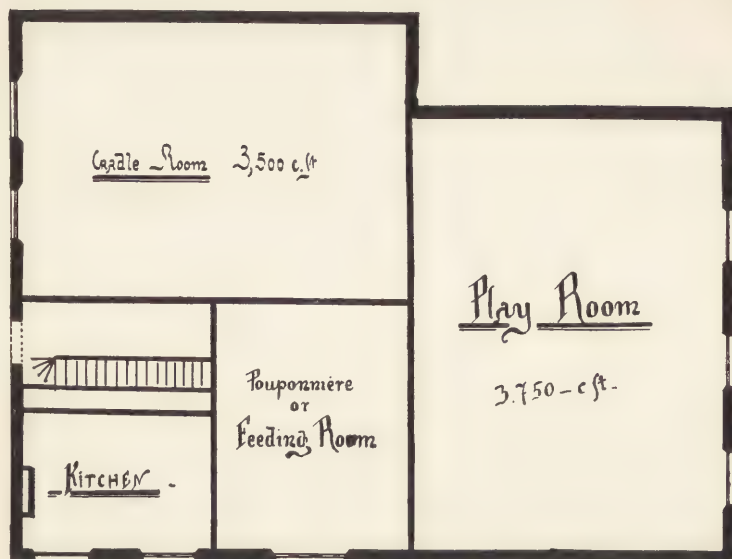 Cradle Room 3,500 c.ft
Play Room
3.750 - c ft.
Pouponnière
or
Feeding Room
Kitchen -